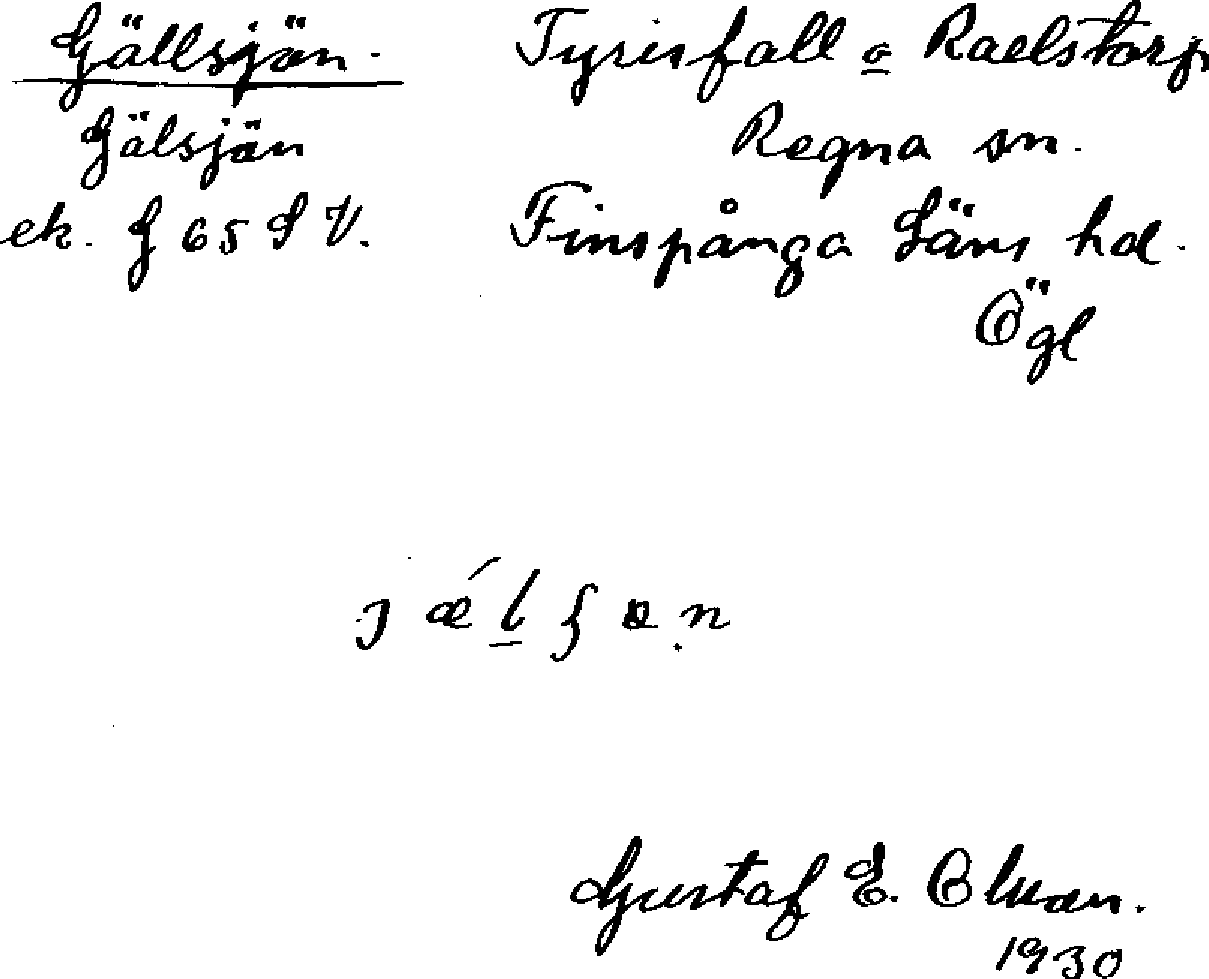 Gällsjön.
Gälsjön
ek. G 65 S V.
Tyrisfall o Radstorp
Regna sn.
Finspånga Läns hd.
Ögl
Gustaf E. Olsson.
1930